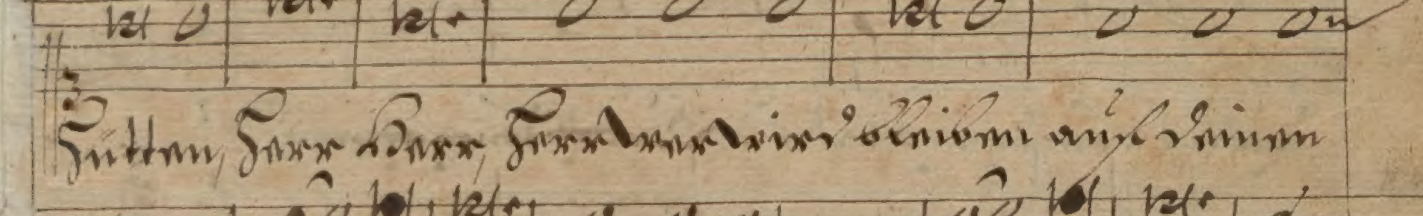 Hütten, Herr Herr, Herr wer wird bleiben auf deinen